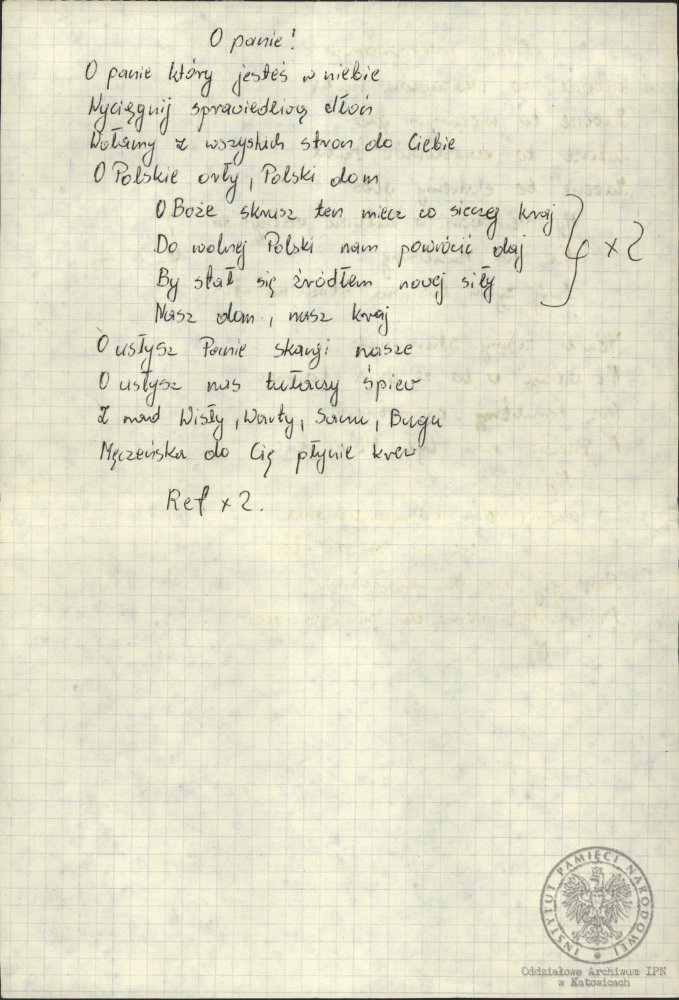 O panie!
O panie który jesteś w niebie
Wyciągnij sprawiedliwą dłoń
Wołamy z wszyskich stron do Ciebie
O Polskie orły, Polski dom
O Boże skrusz ten miecz co siecze kraj
Do wolnej Polski nam powrócić daj
By stał się źródłem nowej siły
Nasz dom, nasz kraj
} x 2
O usłysz Panie skargi nasze
O usłysz nas tułaczy śpiew
Z nad Wisły, Warty, Sanu, Bugu
Męczeńska do Cię płynie krew
Ref x 2.
INSTYTUT PAMIĘCI NARODOWEJ
Oddziałowe Archiwum IPN
w Katowicach